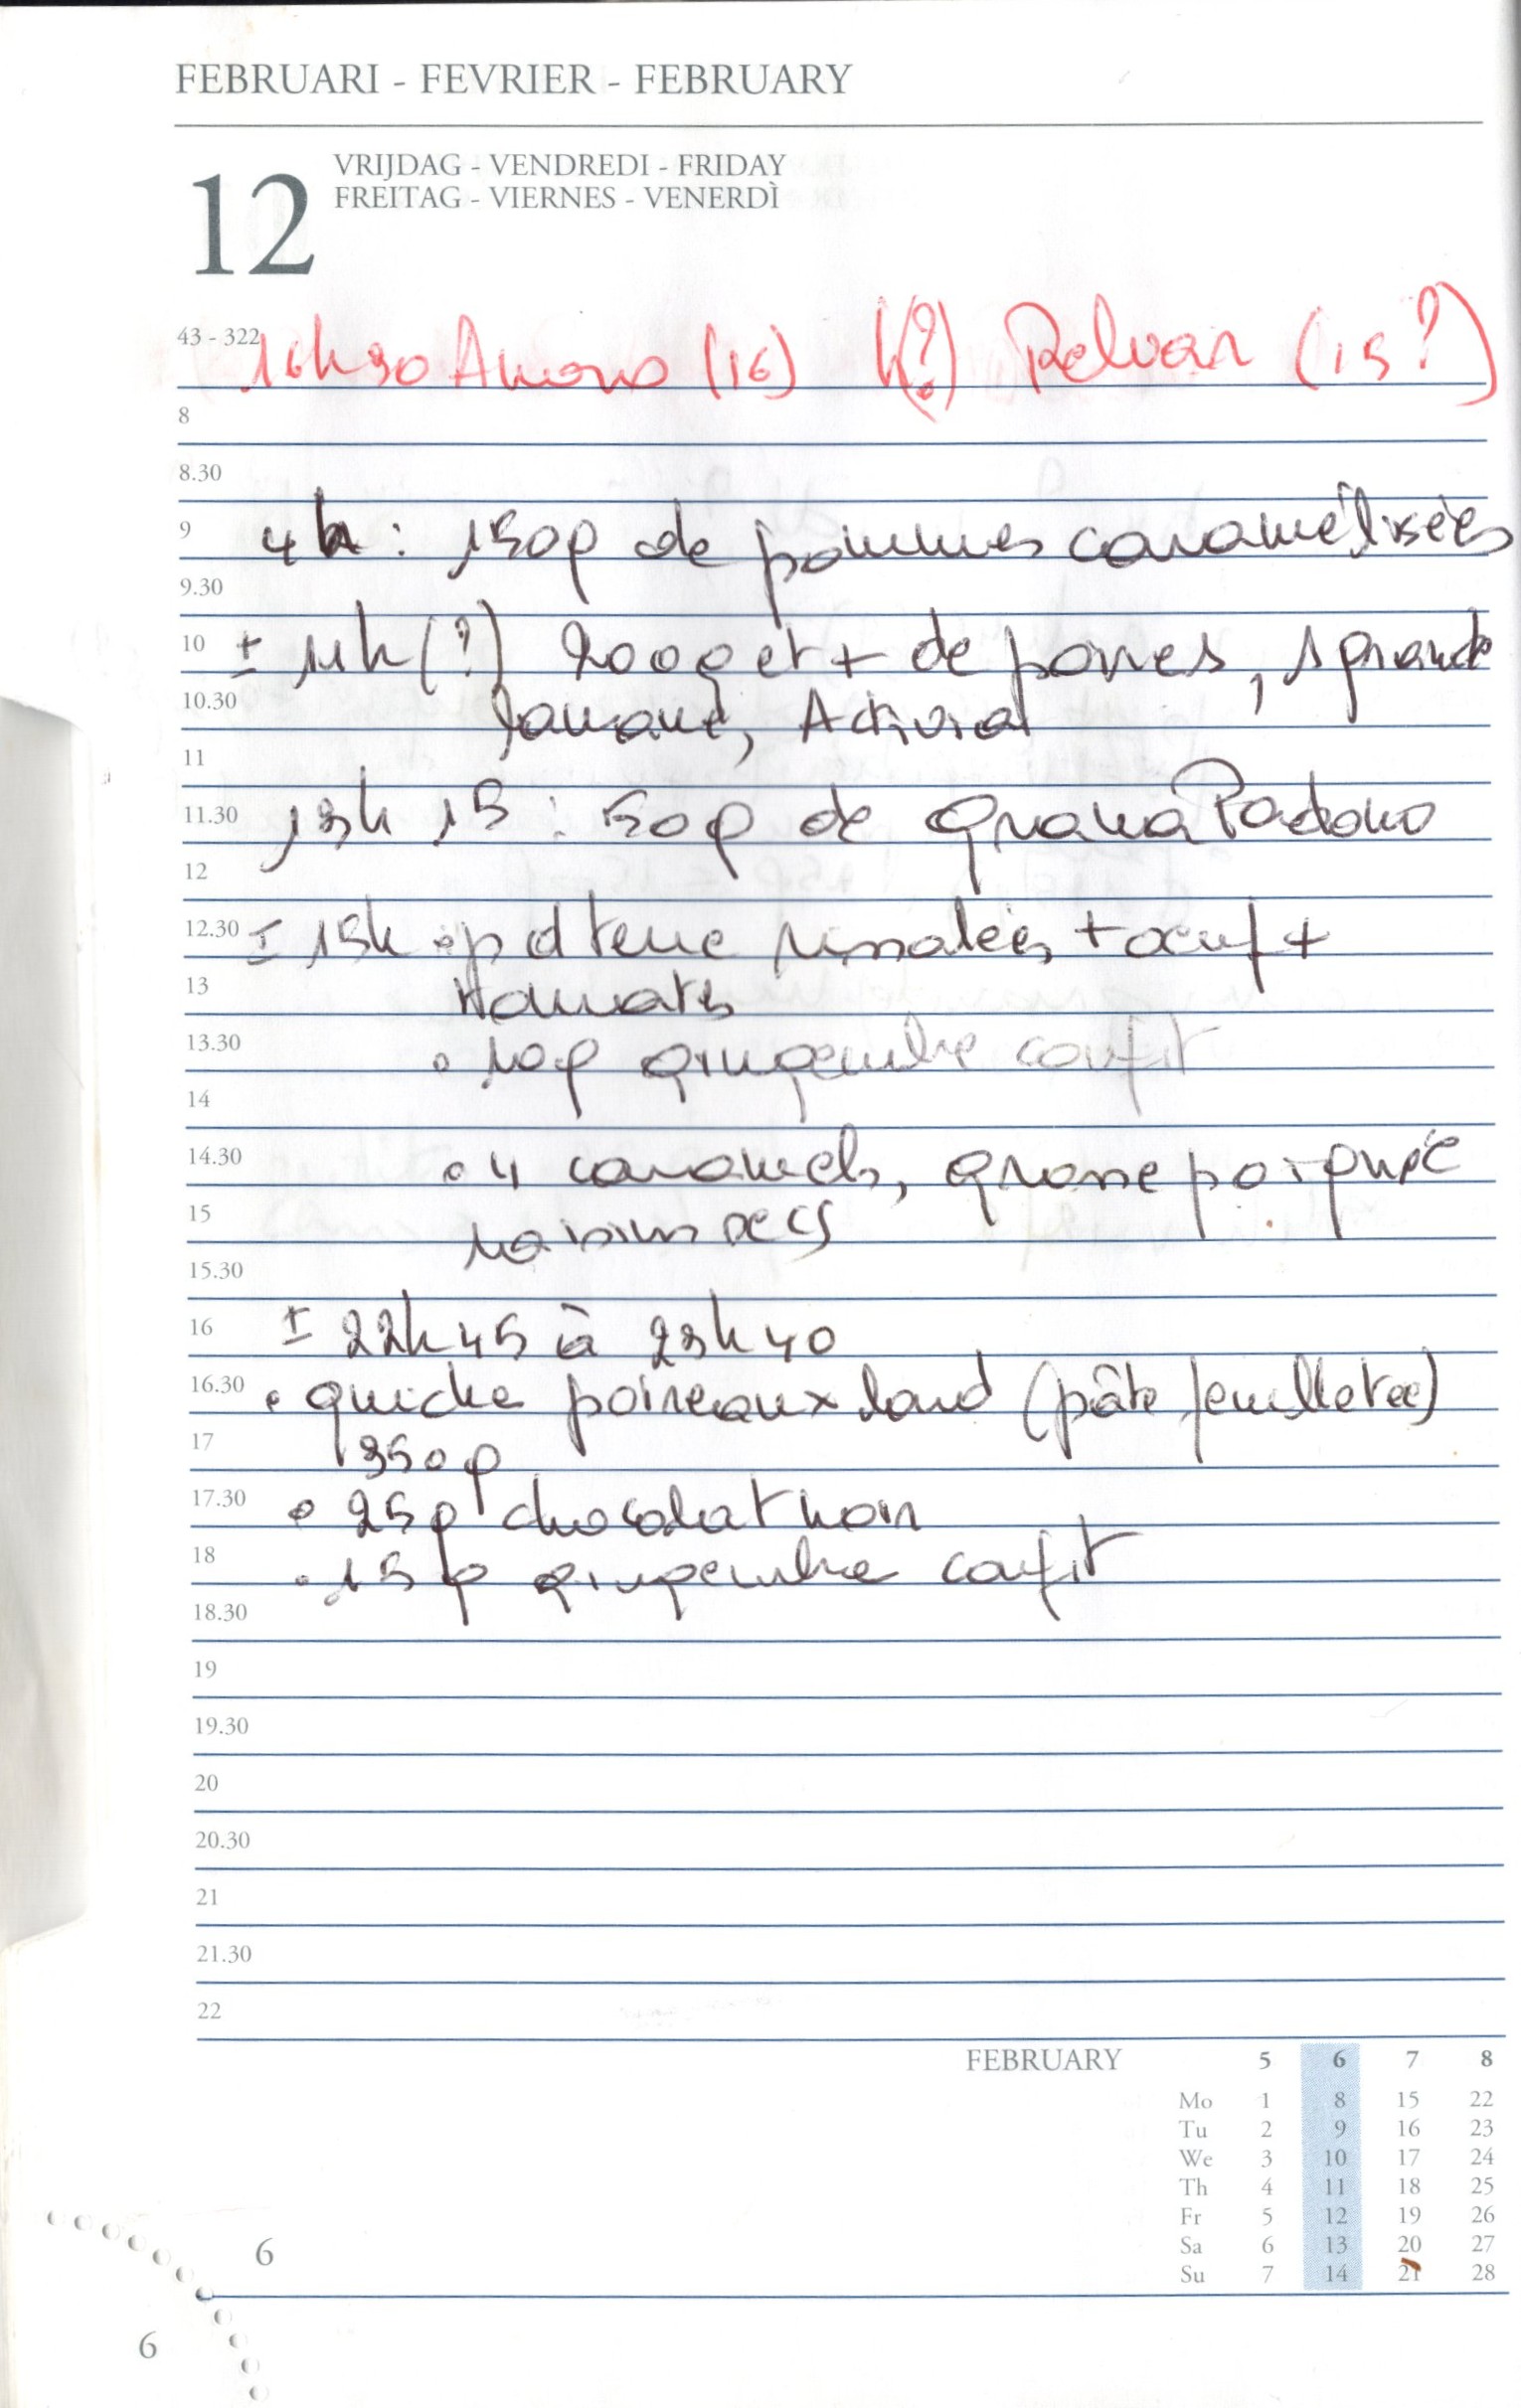 FEBRUARI - FEVRIER - FEBRUARY
12
VRIJDAG - VENDREDI - FRIDAY
FREITAG - VIERNES - VENERDÌ
43 - 322
16h30 (16) h(?) (15?)
8
8.30
9 4h : 150g de pommes caramélisées
9.30
10 ± 11h (?) 200g et + de poires, 1 grande
10.30 banane, Activia
11
11.30 13h 15 : 50g de Grana Padano
12
12.30 ± 15h • p d terre rissolées + œuf +
13 tomates
13.30 • 10g gingembre confit
14
14.30 • 4 caramels, grosse poignée
15 raisins secs
15.30
16 ± 22h45 à 23h40
16.30 • quiche poireaux lard (pâte feuilletée)
17 350g
17.30 • 25g chocolat noir
18 • 15g gingembre confit
18.30
19
19.30
20
20.30
21
21.30
22
FEBRUARY 5 6 7 8
Mo 1 8 15 22
Tu 2 9 16 23
We 3 10 17 24
Th 4 11 18 25
Fr 5 12 19 26
Sa 6 13 20 27
Su 7 14 21 28
6
6